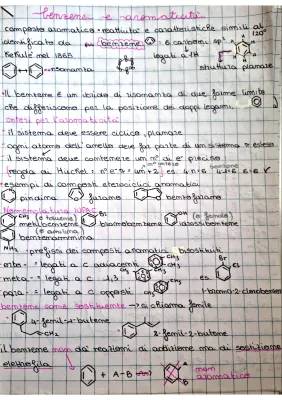 benzene e aromaticità
composto aromatico → reattività e caratteristiche simili al
identificato da benzene 6 carboni sp² 120°
Kekulé nel 1865 legati a 1H
risonanza struttura planare
Il benzene è un ibrido di risonanza di due forme limite
che differiscono per la posizione dei doppi legami.
criteri per l'aromaticità
il sistema deve essere ciclico, planare
ogni atomo dell'anello deve far parte di un sistema π esteso
il sistema deve contenere un n° di e⁻ preciso
regola di Hückel = n° e⁻π = 4n+2 es. 4·n=6 4·1+2=6 ✓
esempi di composti eterociclici aromatici
piridina furano benzofurano
Nomenclatura IUPAC
(o toluene) Br OH (o fenolo)
metilbenzene bromobenzene idrossibenzene
(o anilina)
NH₂ benzenammina
prefissi dei composti aromatici bisostituiti
orto- = legati a C adiacenti CH₃
meta- = legati a C 1,3 CH₃ es Br
para- = legati a C opposti CH₃ 1-bromo-2-clorobenzene
benzene come sostituente → si chiama fenile
4-fenil-1-butene
2-fenil-2-butene
il benzene non dà reazioni di addizione ma di sostituzione
elettrofila
+ A-B → non aromatico